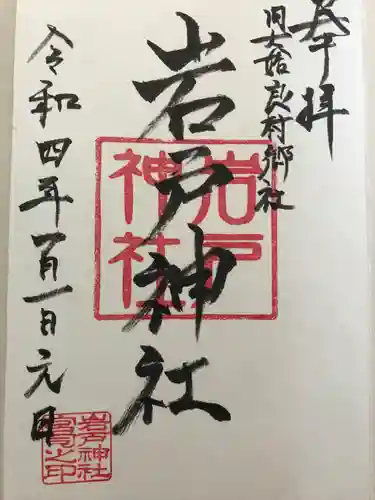 奉拝
旧大姶良村郷社
岩戸神社
岩戸
神社
令和四年一月一日元旦
岩戸神社
之印